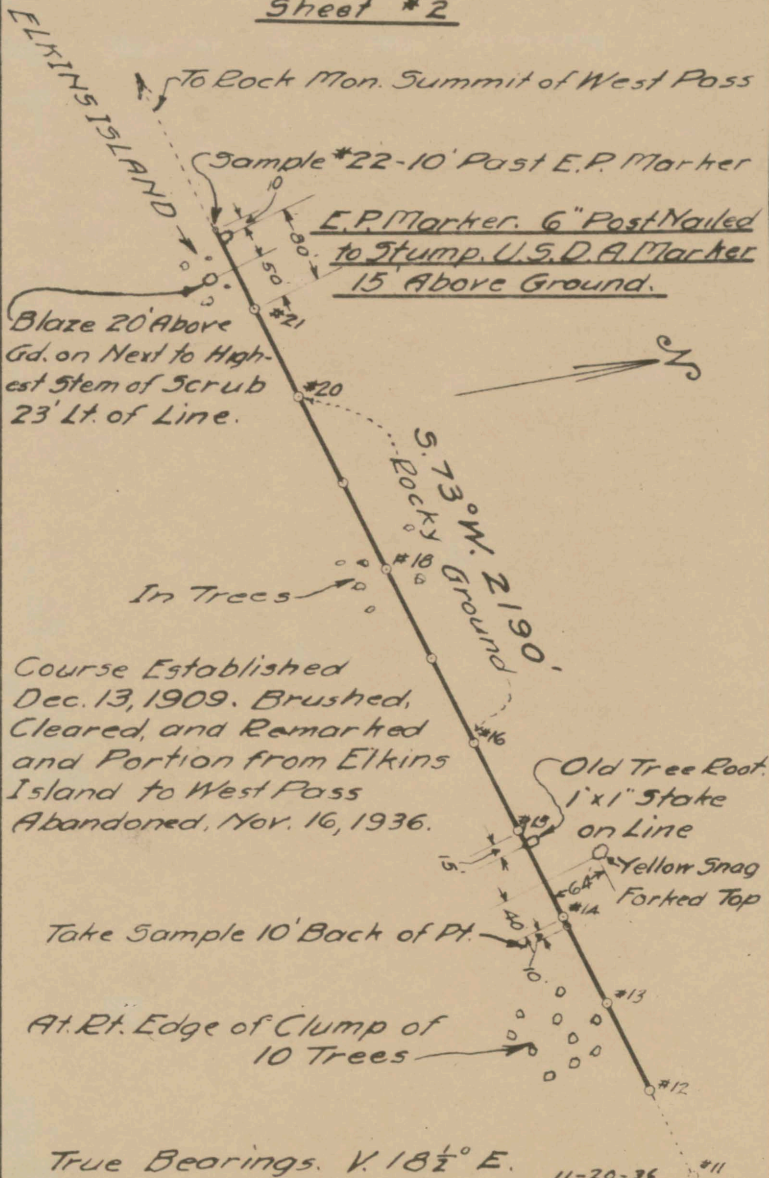 Sheet #2
ELKINS ISLAND
To Rock Mon. Summit of West Pass
Sample #22-10' Past E.P. Marker
10
E.P. Marker. 6" Post Nailed
to Stump. U.S.D.A. Marker
15' Above Ground.
80'
50
#21
Blaze 20' Above
Gd. on Next to High-
est Stem of Scrub
23' Lt. of Line.
N
#20
S. 73° W. 2190'
Rocky Ground
#18
In Trees
Course Established
Dec. 13, 1909. Brushed,
Cleared, and Remarked
and Portion from Elkins
Island to West Pass
Abandoned, Nov. 16, 1936.
#16
Old Tree Root.
1"x1" Stake
on Line
#15
15'
Yellow Snag
Forked Top
64'
40
#14
Take Sample 10' Back of Pt.
10
#13
At Rt. Edge of Clump of
10 Trees
#12
True Bearings. V. 18½° E.
11-20-36
#11